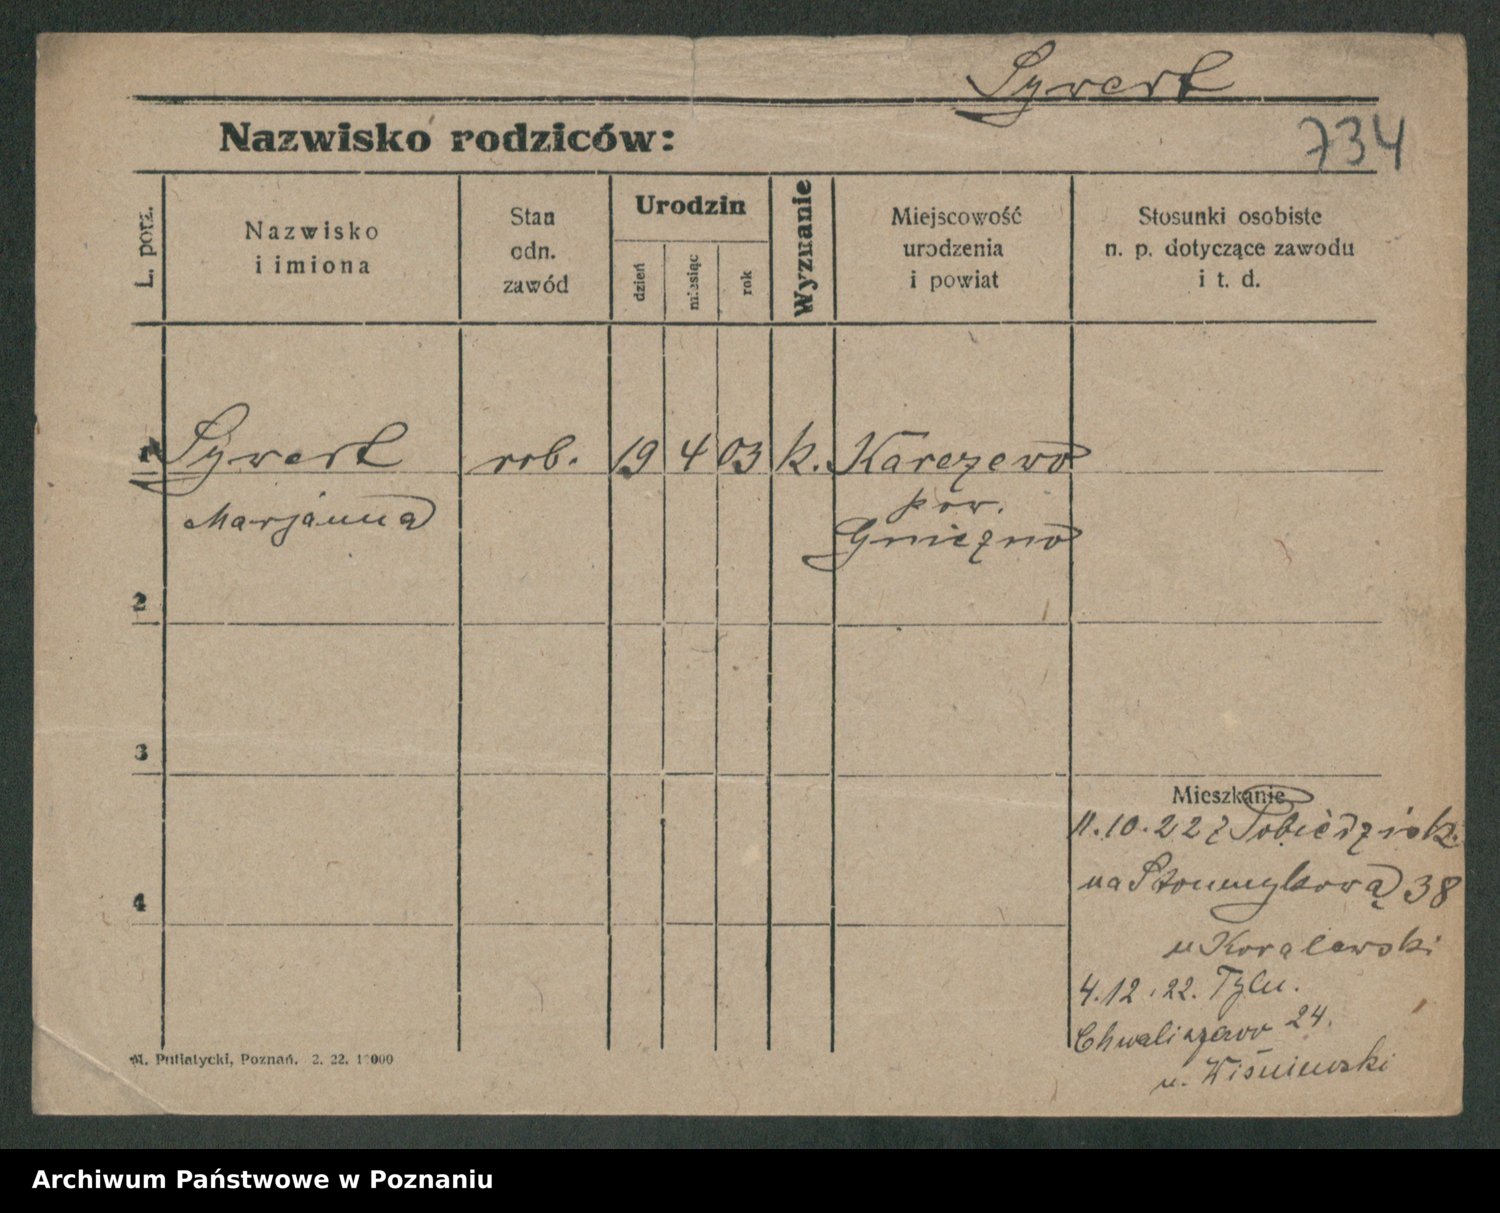 Sywert
Nazwisko rodziców:
734
L. porz.
Nazwisko
i imiona
Stan
odn.
zawód
Urodzin
dzień
miesiąc
rok
Wyznanie
Miejscowość
urodzenia
i powiat
Stosunki osobiste
n. p. dotyczące zawodu
i t. d.
1 Sywert rob. 19 4 03 k. Karczewo
Marjanna pow.
Gniezno
2
3
4
Mieszkanie
11.10.22 z Pobiedzisk
na 38
u Koralewski
4.12.22. Tyln.
Chwaliszewo 24.
u. Wiśniewski
M. Putiatycki, Poznań. 2. 22. 1 000
Archiwum Państwowe w Poznaniu